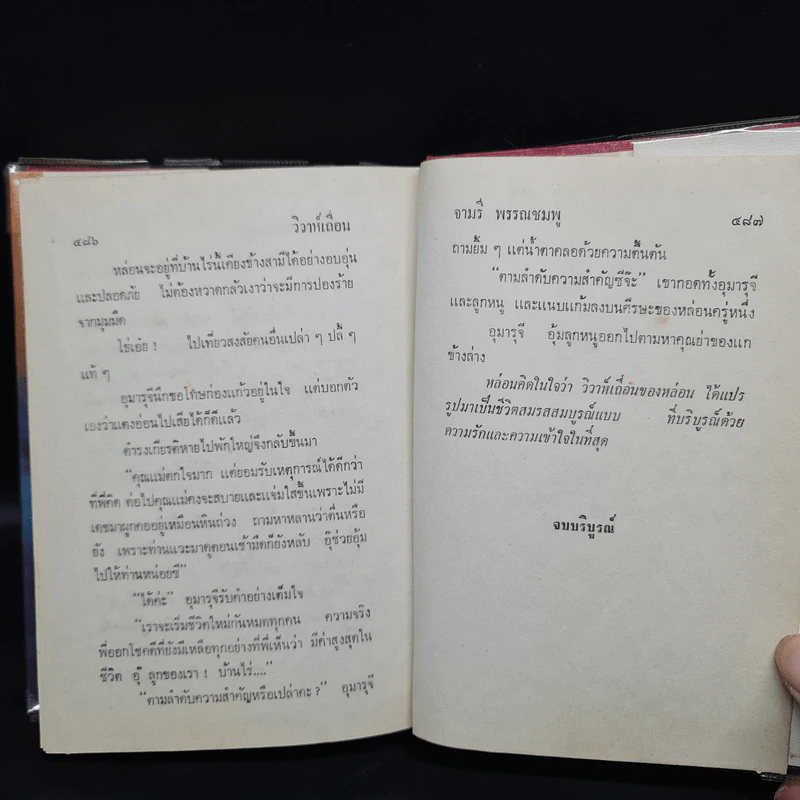 ๔๘๖
วิวาห์เถื่อน
หล่อนจะอยู่ที่บ้านไร่นี้เคียงข้างสามีได้อย่างอบอุ่น
และปลอดภัย ไม่ต้องหวาดกลัวเงาว่าจะมีการปองร้าย
จากมุมมืด
โธ่เอ๋ย ! ไปเที่ยวสงสัยคนอื่นเปล่า ๆ ปลี้ ๆ
แท้ ๆ
อุมารุจีนึกขอโทษก่องแก้วอยู่ในใจ แต่บอกตัว
เองว่าแดงอ่อนไปเสียได้ก็ดีแล้ว
ดำรงเกียรติหายไปพักใหญ่จึงกลับขึ้นมา
“คุณแม่ตกใจมาก แต่ยอมรับเหตุการณ์ได้ดีกว่า
ที่พี่คิด ต่อไปคุณแม่คงจะสบายและแจ่มใสขึ้นเพราะไม่มี
เดชมาผูกคออยู่เหมือนหินถ่วง ถามหาหลานว่าตื่นหรือ
ยัง เพราะท่านแวะมาดูตอนเช้ามืดก็ยังหลับ อุ๊ช่วยอุ้ม
ไปให้ท่านหน่อยซี”
“ได้ค่ะ” อุมารุจีรับคำอย่างเต็มใจ
“เราจะเริ่มชีวิตใหม่กันหมดทุกคน ความจริง
พี่ออกโชคดีที่ยังมีเหลือทุกอย่างที่พี่เห็นว่า มีค่าสูงสุดใน
ชีวิต อุ๊ ลูกของเรา ! บ้านไร่....”
“ตามลำดับความสำคัญหรือเปล่าคะ ?” อุมารุจี
จามรี พรรณชมพู
๔๘๗
ถามยิ้ม ๆ แต่น้ำตาคลอด้วยความตื้นตัน
“ตามลำดับความสำคัญซีจ๊ะ” เขากอดทั้งอุมารุจี
และลูกหนู และแนบแก้มลงบนศีรษะของหล่อนครู่หนึ่ง
อุมารุจี อุ้มลูกหนูออกไปตามหาคุณย่าของแก
ข้างล่าง
หล่อนคิดในใจว่า วิวาห์เถื่อนของหล่อน ได้แปร
รูปมาเป็นชีวิตสมรสสมบูรณ์แบบ ที่บริบูรณ์ด้วย
ความรักและความเข้าใจในที่สุด
จบบริบูรณ์